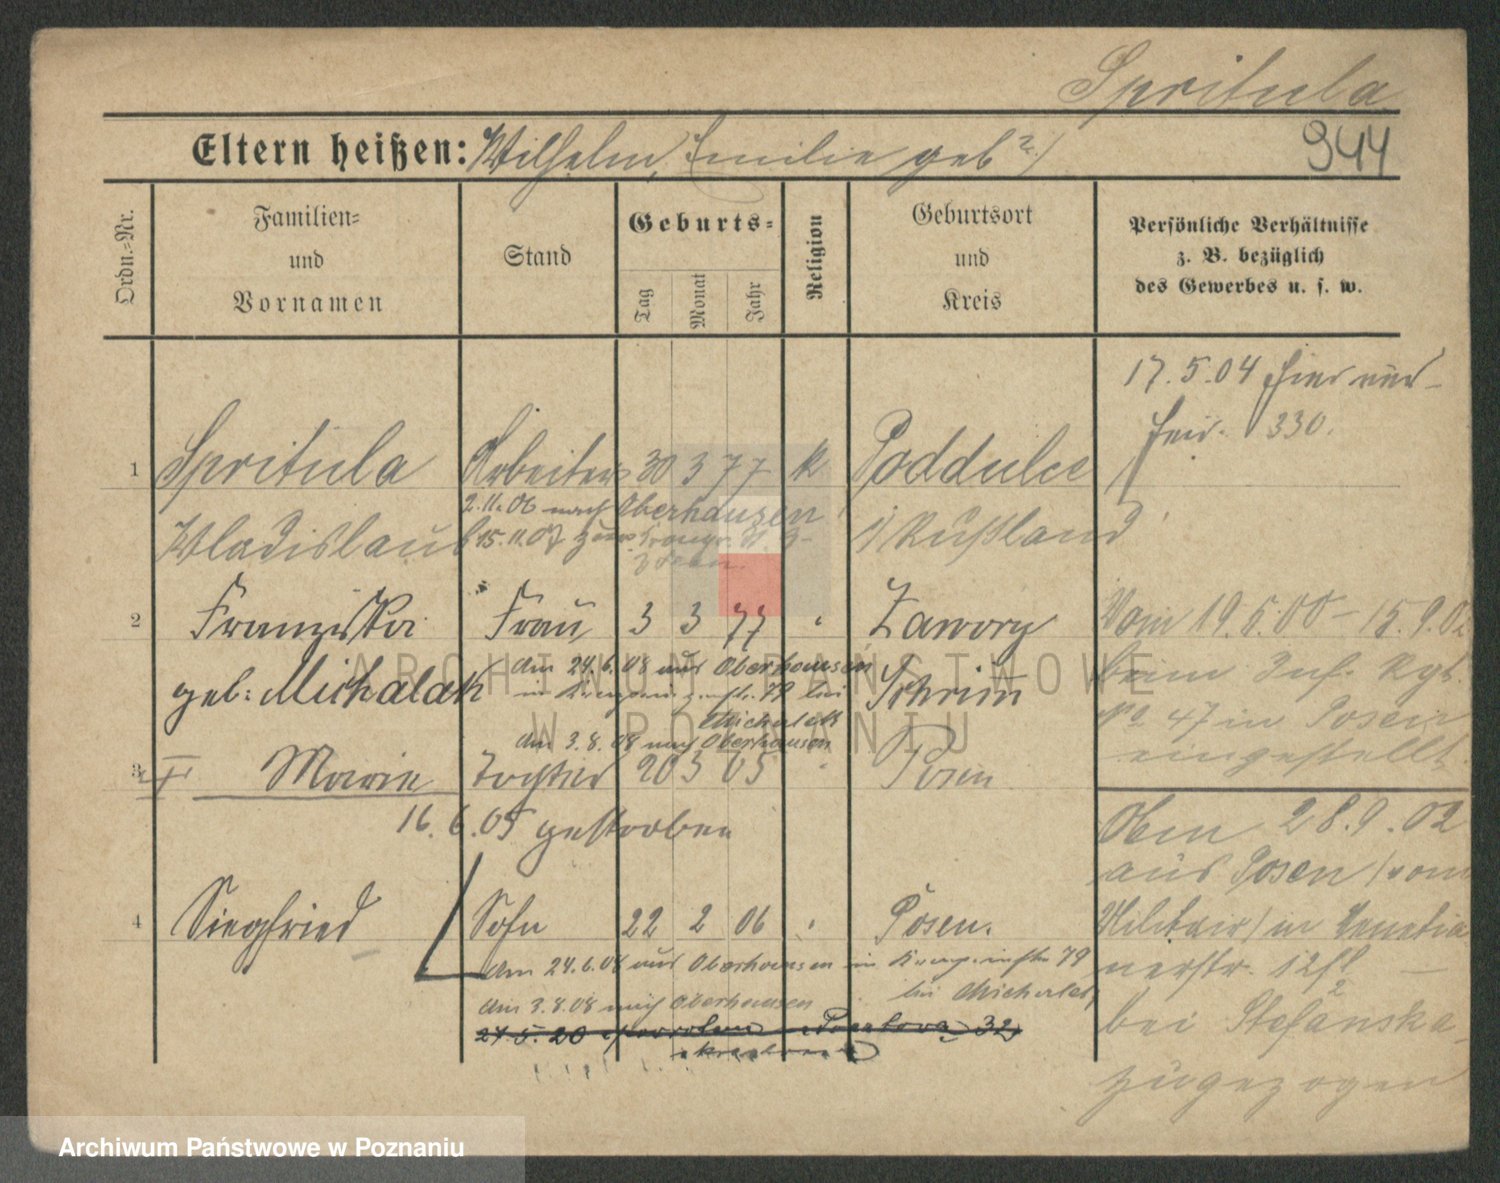 Spritula
Eltern heißen: Wilhelm, Emilie geb ?)
944
Ordn.=Nr.
Familien= und Vornamen
Stand
Geburts=
Tag Monat Jahr
Religion
Geburtsort und Kreis
Persönliche Verhältnisse
z. B. bezüglich
des Gewerbes u. s. w.
17.5.04 hier ver-
heir. 330.
1 Spritula Arbeiter 30 3 77 k Poddulce
2.11.06 nach Oberhausen
Wladislaus 15.11.07 zur
i/ Rußland
2 Franziska Frau 3 3 77 Zawory
geb: Michalak Schrim
am 24.6.08 aus Oberhausen
in 79 bei
Michalak
am 3.8.08 nach Oberhausen
Vom 19.5.00 - 15.9.02
beim Inf. Rgt.
No. 47 in Posen
eingestellt.
3 Marie Tochter 20 3 05 Posen
16.6.05 gestorben
Oben 28.9.02
aus Posen (vom
Militair) in Venetia
nerstr. 12
bei Stefanska
zugezogen
4 Siegfried Sohn 22 2 06 Posen.
am 24.6.08 aus Oberhausen in 79
bei Michalak
am 3.8.08 nach Oberhausen
27.5.20 32
ARCHIWUM PAŃSTWOWE
W POZNANIU
Archiwum Państwowe w Poznaniu